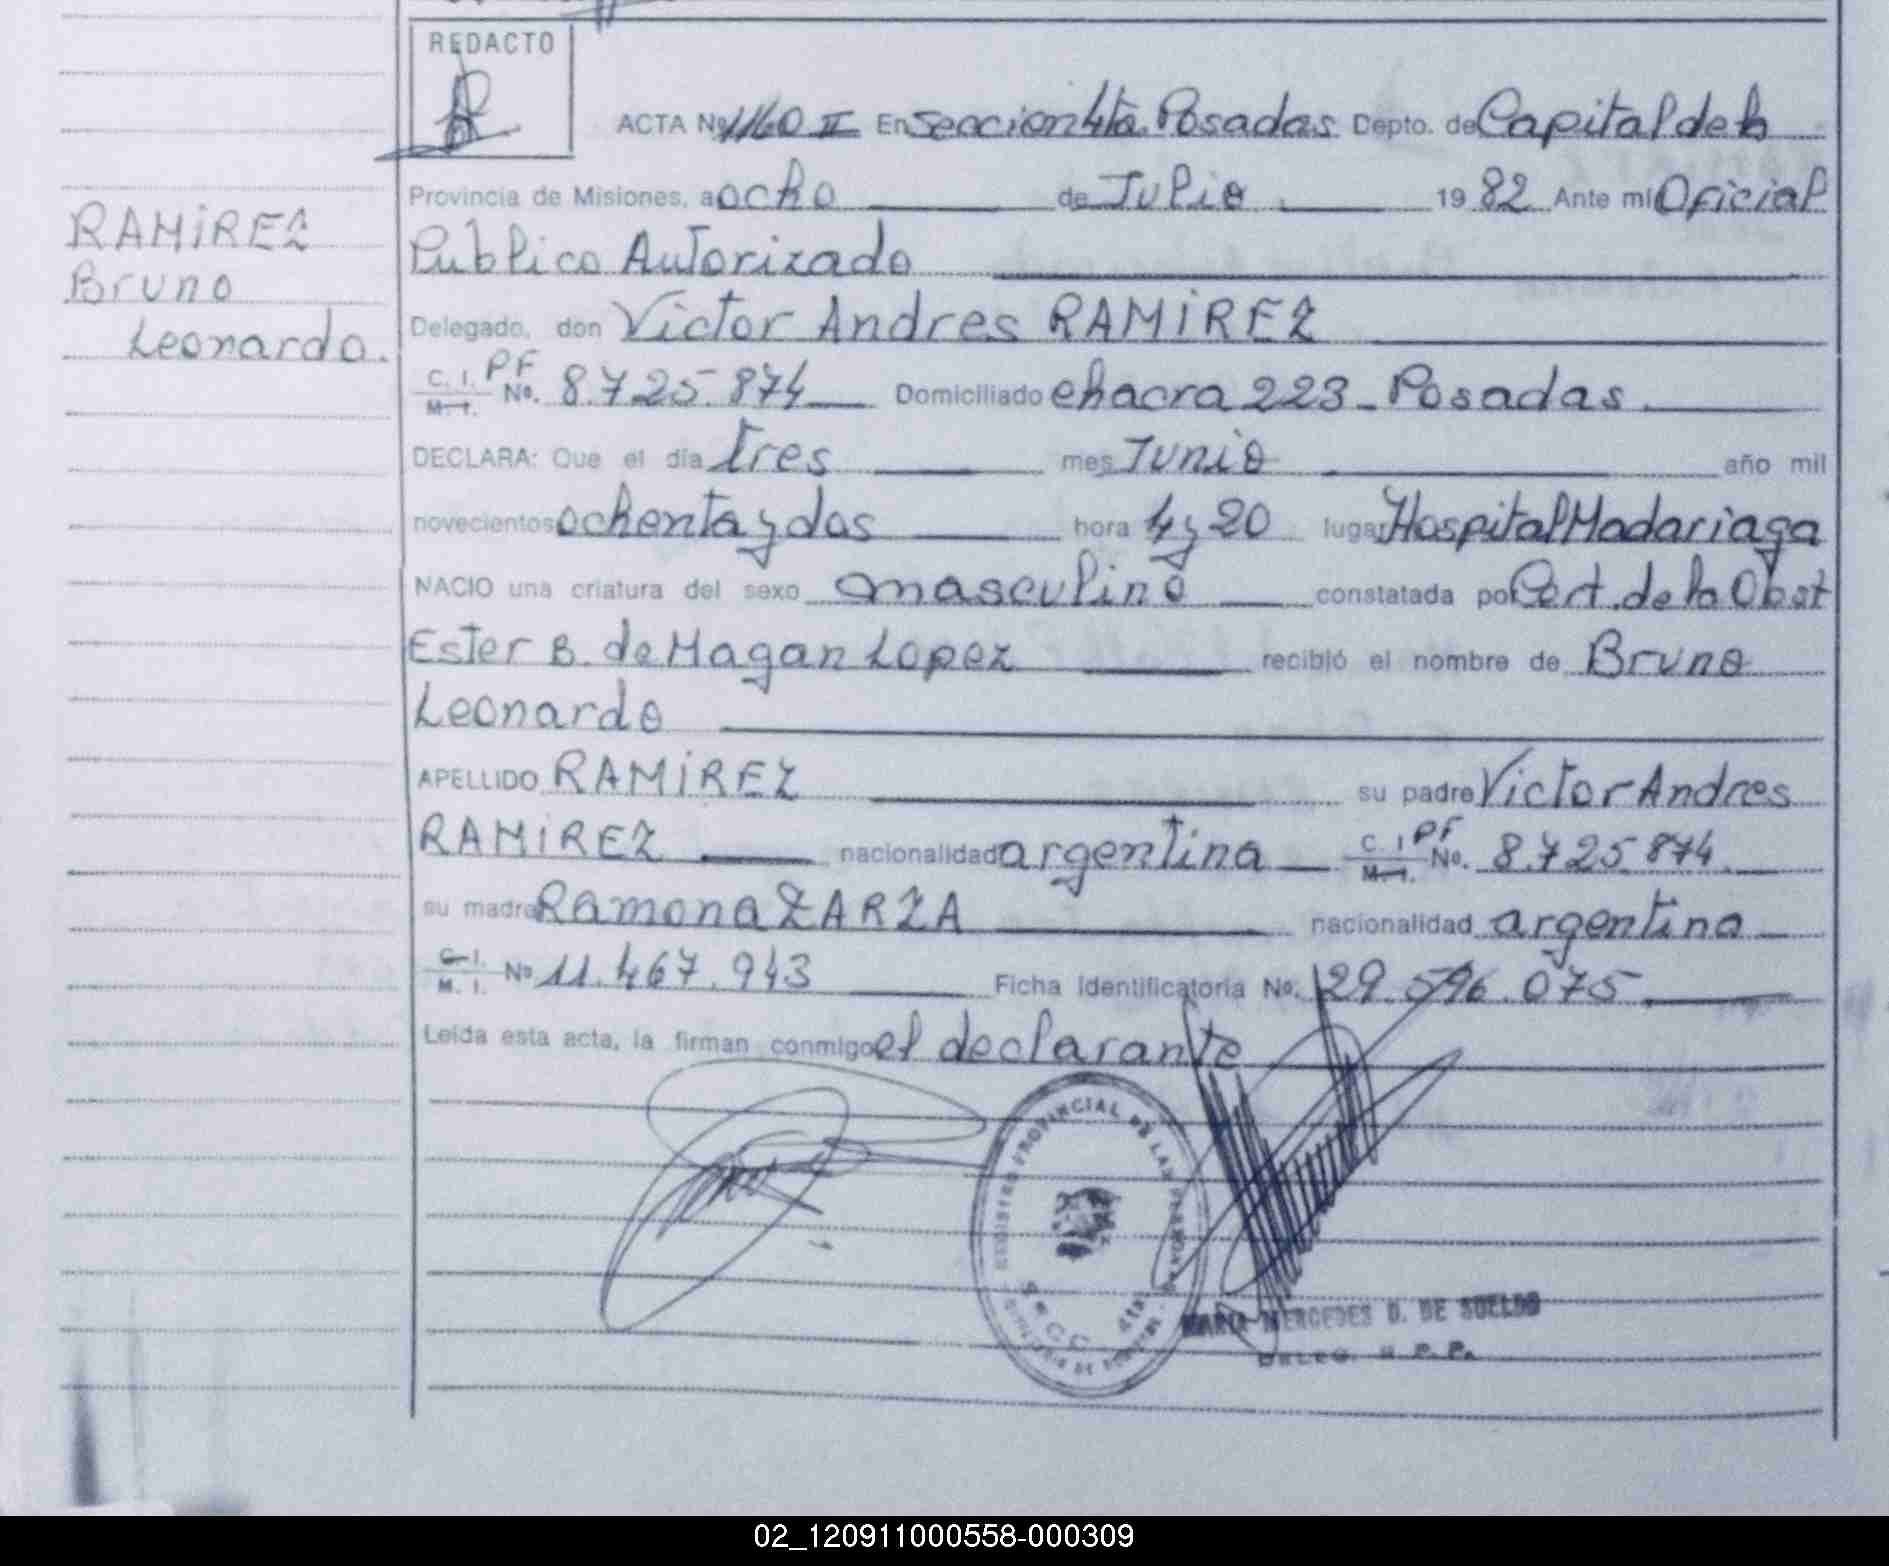 REDACTO
ACTA Nº 1160 II En Seccion 4ta. Posadas Depto. de Capital de la
Provincia de Misiones, a ocho de Julio 1982 Ante mi Oficial
Publico Autorizado
Delegado, don Victor Andres RAMIREZ
C. I. M. I. PF No. 8.725.874 Domiciliado chacra 223 - Posadas
DECLARA: Que el día tres mes Junio año mil
novecientos ochenta y dos hora 4 y 20 lugar Hospital Madariaga
NACIO una criatura del sexo masculino constatada por Cert. de la Obst
Ester B. de Magan Lopez recibió el nombre de Bruno
Leonardo
APELLIDO RAMIREZ su padre Victor Andres
RAMIREZ nacionalidad argentina C. I. M. I. PF No. 8.725.874
su madre Ramona ZARZA nacionalidad argentina
C. I. M. I. Nº 11.467.943 Ficha Identificatoria No. 29.596.075
Leída esta acta, la firman conmigo el declarante
RAMIREZ
Bruno
Leonardo.
REGISTRO PROVINCIAL DE LAS PERSONAS
Secc 4ta
MARIA MERCEDES D. DE SUELDO
02_120911000558-000309